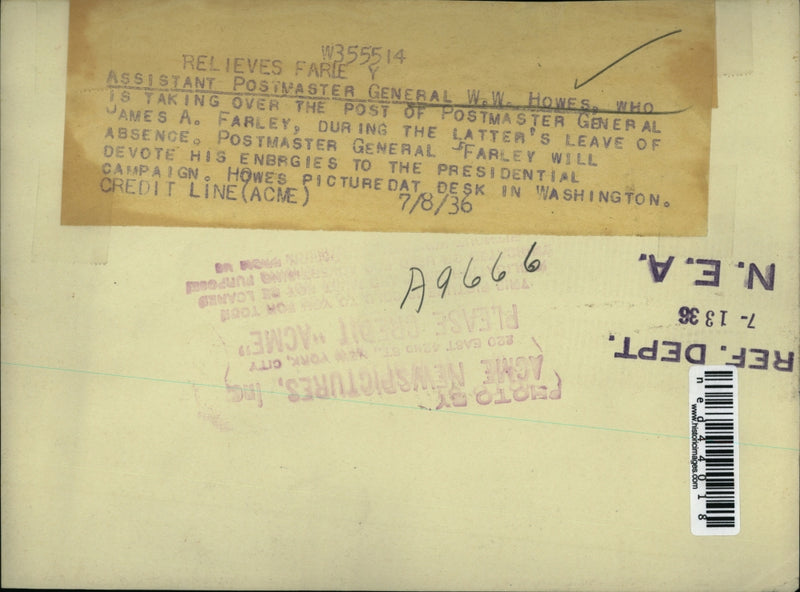 W355514
RELIEVES FARLE Y
ASSISTANT POSTMASTER GENERAL W.W. HOWES, WHO
IS TAKING OVER THE POST OF POSTMASTER GENERAL
JAMES A. FARLEY, DURING THE LATTER'S LEAVE OF
ABSENCE. POSTMASTER GENERAL FARLEY WILL
DEVOTE HIS ENBRGIES TO THE PRESIDENTIAL
CAMPAIGN. HOWES PICTUREDAT DESK IN WASHINGTON.
CREDIT LINE(ACME) 7/8/36
A9666
N.E.A.
7-1336
REF. DEPT.
PHOTO BY
ACME NEWSPICTURES, Inc
220 EAST 42ND ST. NEW YORK, CITY
PLEASE CREDIT "ACME"
YOU FOR YOUR
NOT BE LOANED
PURPOSES
FROM US
ned44018
www.historicimages.com